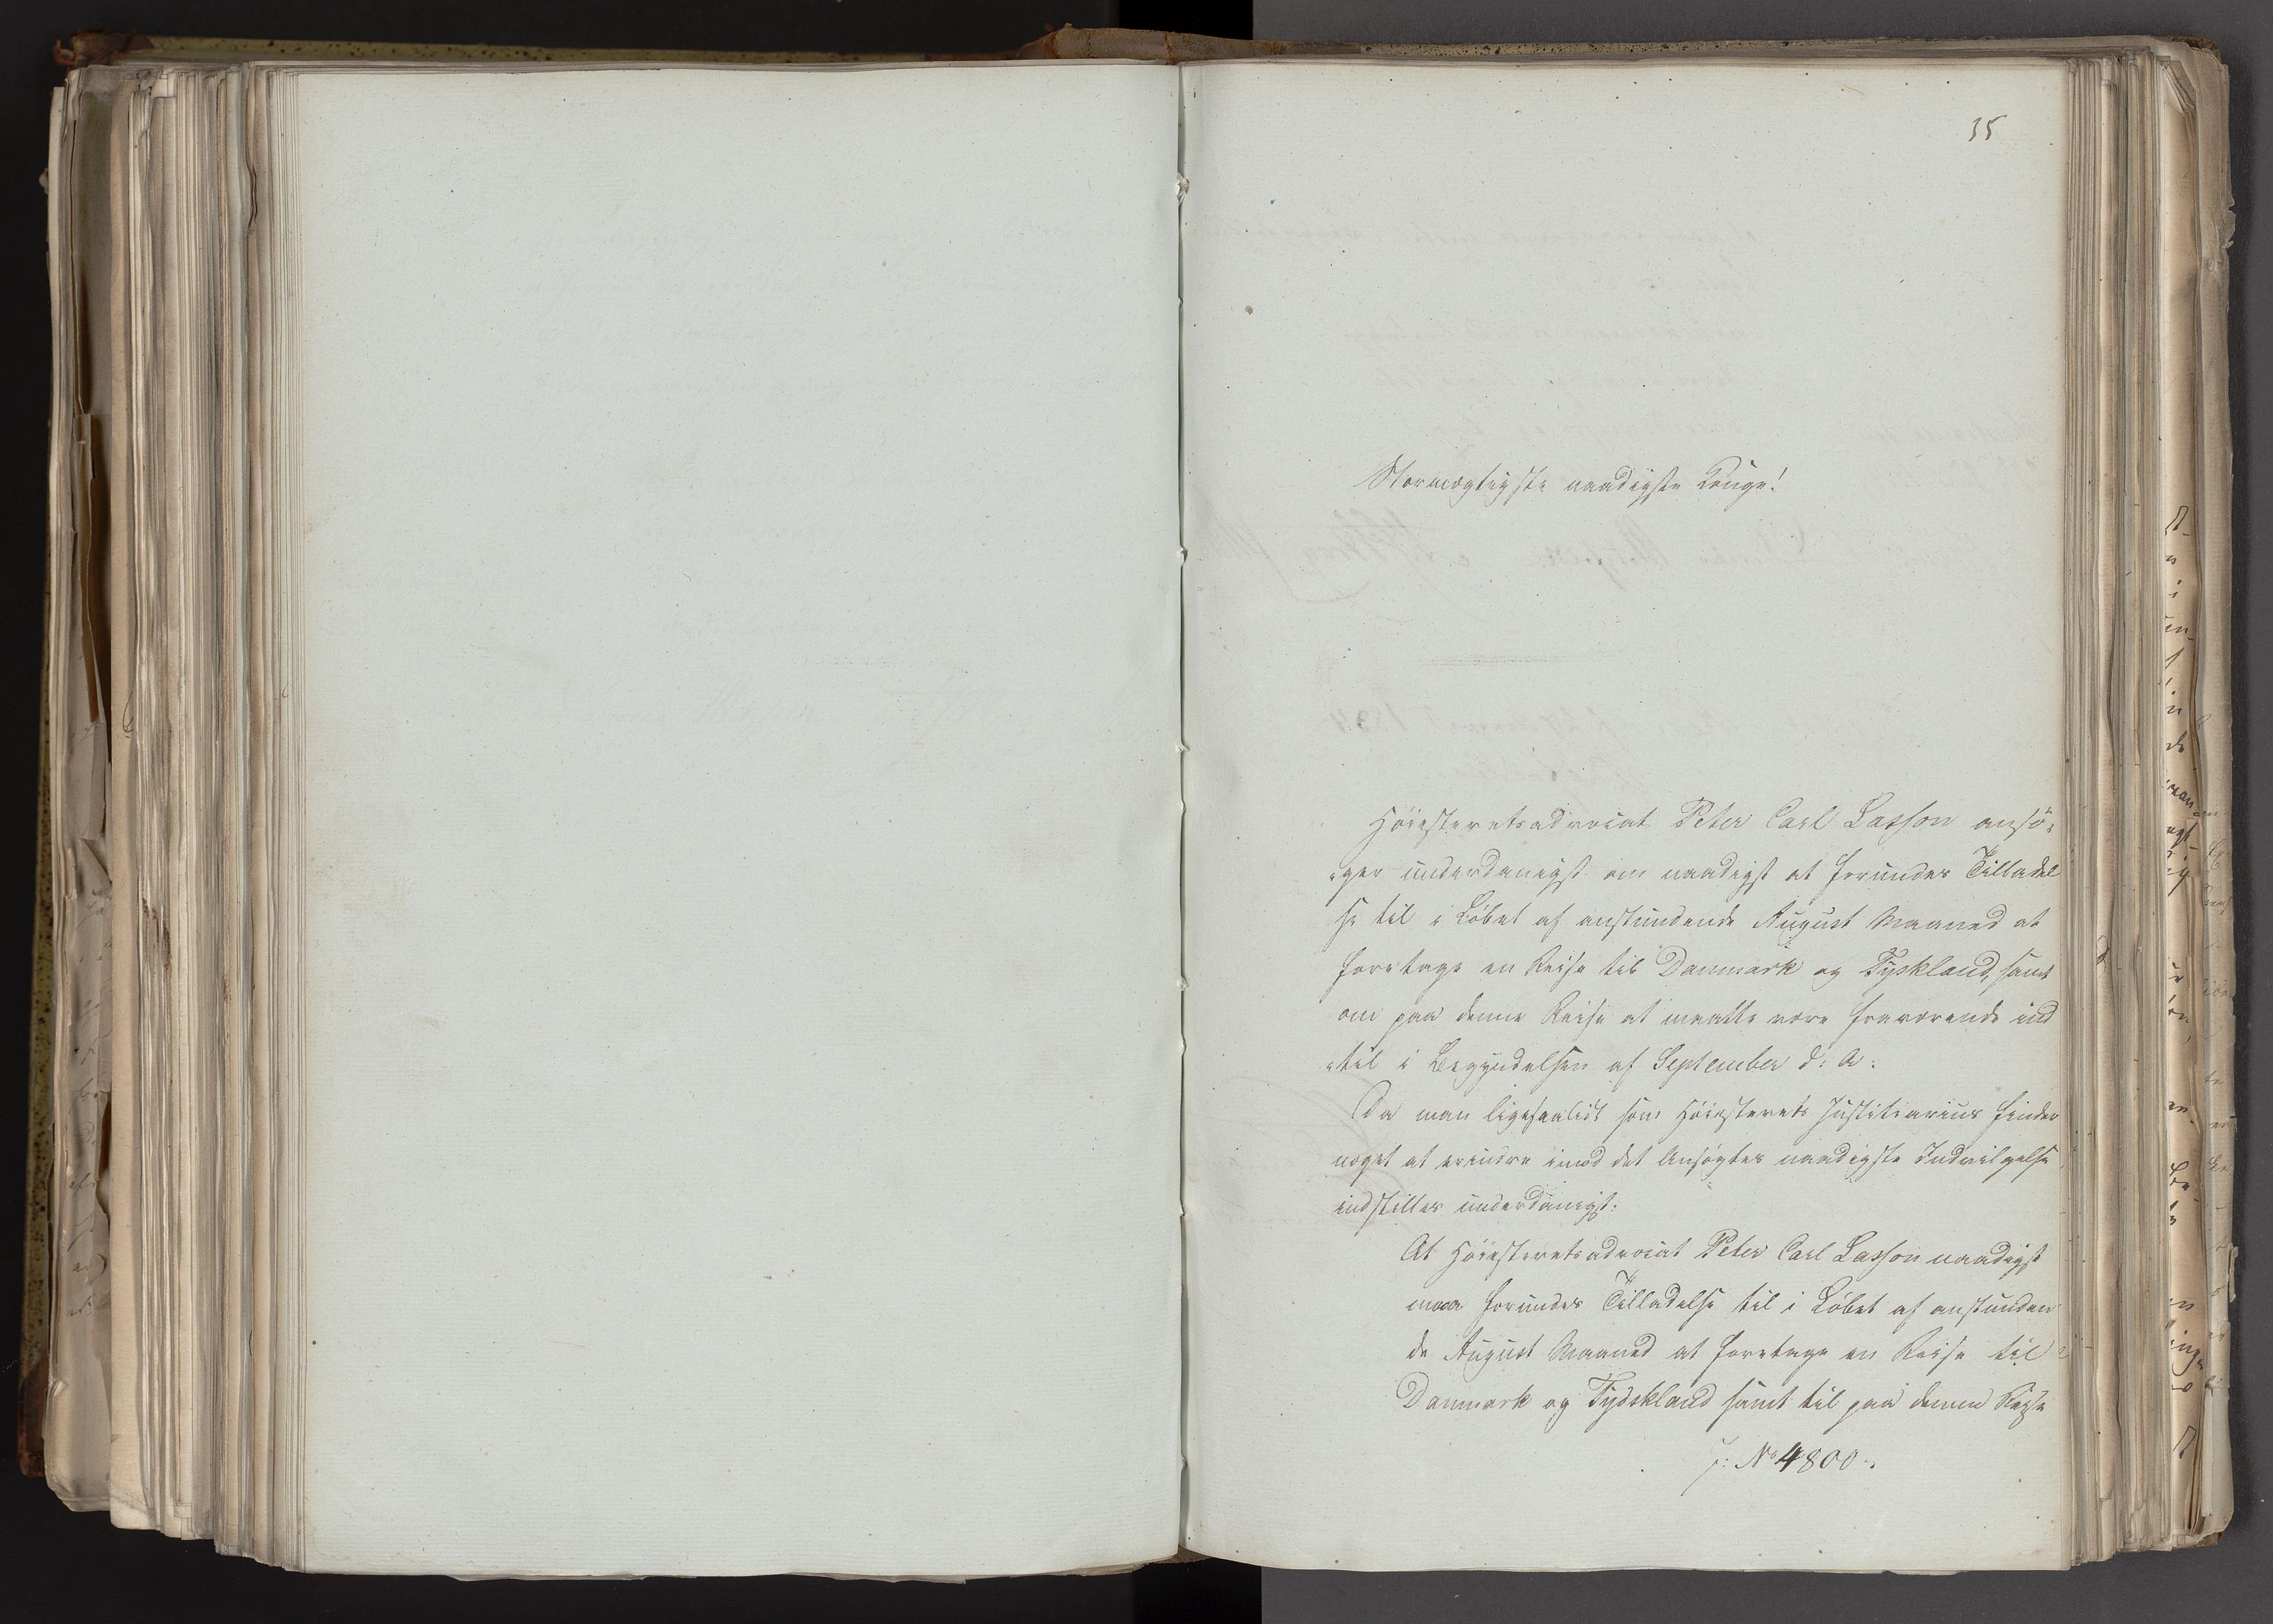 35
Stormægtigste naadigste Konge!
Høiesteretsadvocat Peter Carl Lasson ansø-
-ger underdanigst om naadigst at forundes Tilladel
se til i Løbet af anstundende August Maaned at
foretage en Reise til Danmark og Tyskland, samt
om paa denne Reise at maatte være fraværende ind
-til i Begyndelsen af September d: A:
Da man ligesaalidt som Høiesterets Justitiarius finder
noget at erindre imod det Ansøgtes naadigste Indvilgelse
indstilles underdanigst:
At Høiesteretsadvocat Peter Carl Lasson naadigst
maa forundes Tilladelse til i Løbet af anstunden
de August Maaned at foretage en Reise til
Danmark og Tydskland samt til paa denne Reise
J: No 4800.